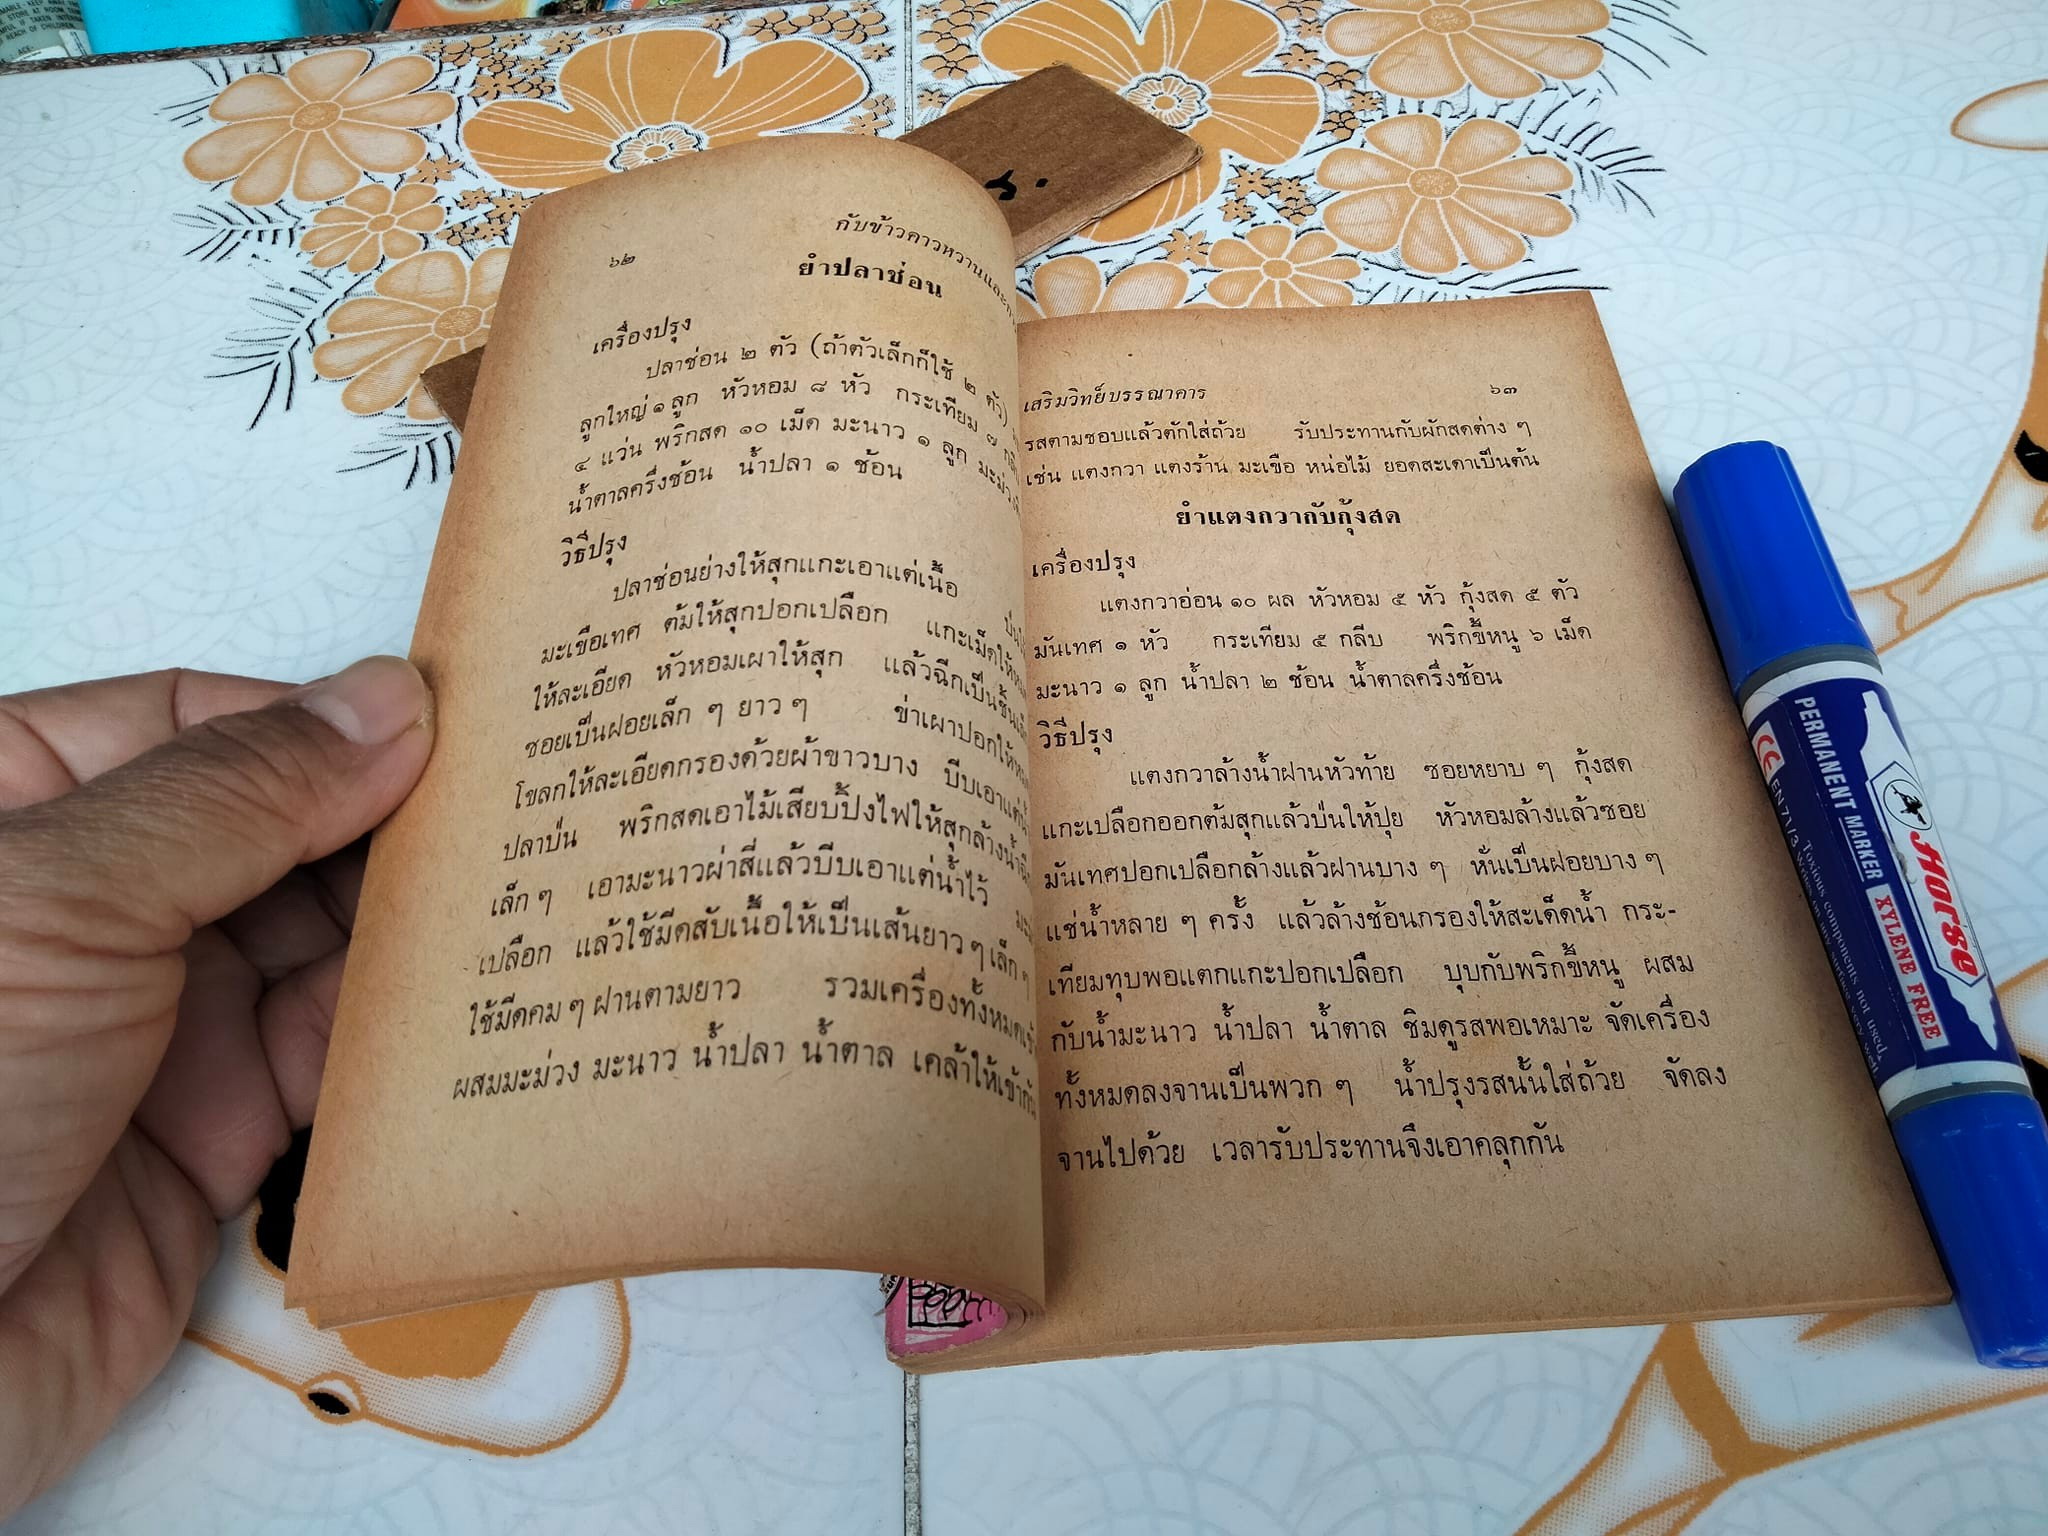 ๖๒
กับข้าวคาวหวานและ
ยำปลาช่อน
เครื่องปรุง
ปลาช่อน ๒ ตัว (ถ้าตัวเล็กก็ใช้ ๒ ตัว)
ลูกใหญ่ ๑ ลูก หัวหอม ๘ หัว กระเทียม ๗
๔ แว่น พริกสด ๑๐ เม็ด มะนาว ๑ ลูก
น้ำตาลครึ่งช้อน น้ำปลา ๑ ช้อน
วิธีปรุง
ปลาช่อนย่างให้สุกแกะเอาแต่เนื้อ
มะเขือเทศ ต้มให้สุกปอกเปลือก แกะเม็ดให้
ให้ละเอียด หัวหอมเผาให้สุก แล้วฉีกเป็นชิ้น
ซอยเป็นฝอยเล็ก ๆ ยาว ๆ ข่าเผาปอกให้
โขลกให้ละเอียดกรองด้วยผ้าขาวบาง บีบเอาแต่
ปลาป่น พริกสดเอาไม้เสียบปิ้งไฟให้สุกล้างน้ำ
เล็ก ๆ เอามะนาวผ่าสี่แล้วบีบเอาแต่น้ำไว้
เปลือก แล้วใช้มีดสับเนื้อให้เป็นเส้นยาว ๆ เล็ก ๆ
ใช้มีดคม ๆ ฝานตามยาว รวมเครื่องทั้งหมด
ผสมมะม่วง มะนาว น้ำปลา น้ำตาล เคล้าให้เข้ากัน
เสริมวิทย์บรรณาคาร ๖๓
รสตามชอบแล้วตักใส่ถ้วย รับประทานกับผักสดต่าง ๆ
เช่น แตงกวา แตงร้าน มะเขือ หน่อไม้ ยอดสะเดาเป็นต้น
ยำแตงกวากับกุ้งสด
เครื่องปรุง
แตงกวาอ่อน ๑๐ ผล หัวหอม ๕ หัว กุ้งสด ๕ ตัว
มันเทศ ๑ หัว กระเทียม ๕ กลีบ พริกขี้หนู ๖ เม็ด
มะนาว ๑ ลูก น้ำปลา ๒ ช้อน น้ำตาลครึ่งช้อน
วิธีปรุง
แตงกวาล้างน้ำฝานหัวท้าย ซอยหยาบ ๆ กุ้งสด
แกะเปลือกออกต้มสุกแล้วป่นให้ปุย หัวหอมล้างแล้วซอย
มันเทศปอกเปลือกล้างแล้วฝานบาง ๆ หั่นเป็นฝอยบาง ๆ
แช่น้ำหลาย ๆ ครั้ง แล้วล้างช้อนกรองให้สะเด็ดน้ำ กระ-
เทียมทุบพอแตกแกะปอกเปลือก บุบกับพริกขี้หนู ผสม
กับน้ำมะนาว น้ำปลา น้ำตาล ชิมดูรสพอเหมาะ จัดเครื่อง
ทั้งหมดลงจานเป็นพวก ๆ น้ำปรุงรสนั้นใส่ถ้วย จัดลง
จานไปด้วย เวลารับประทานจึงเอาคลุกกัน
PERMANENT MARKER XYLENE FREE
Horse
CE EN 71/3
Toxious components not used.
REACH OF CHILDREN